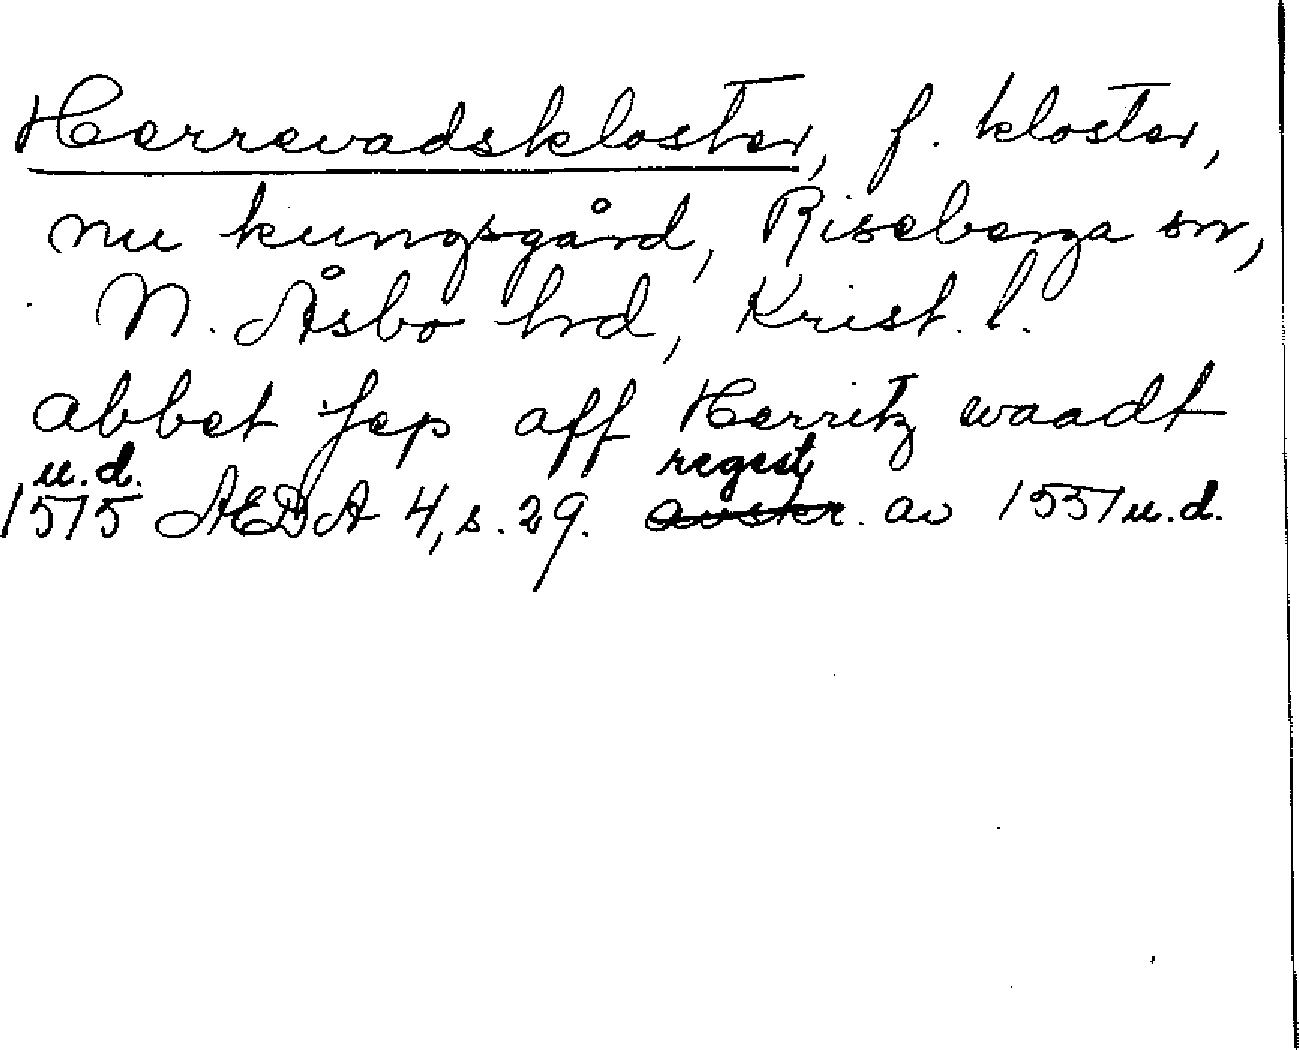 Herrevadskloster, f. kloster,
nu kungsgård, Riseberga sn,
N. Åsbo hrd, Krist. l.
abbet Jep aff Herritz waadt
u.d. regest
1575 AEDA 4, s. 29. avskr. av 1551 u.d.